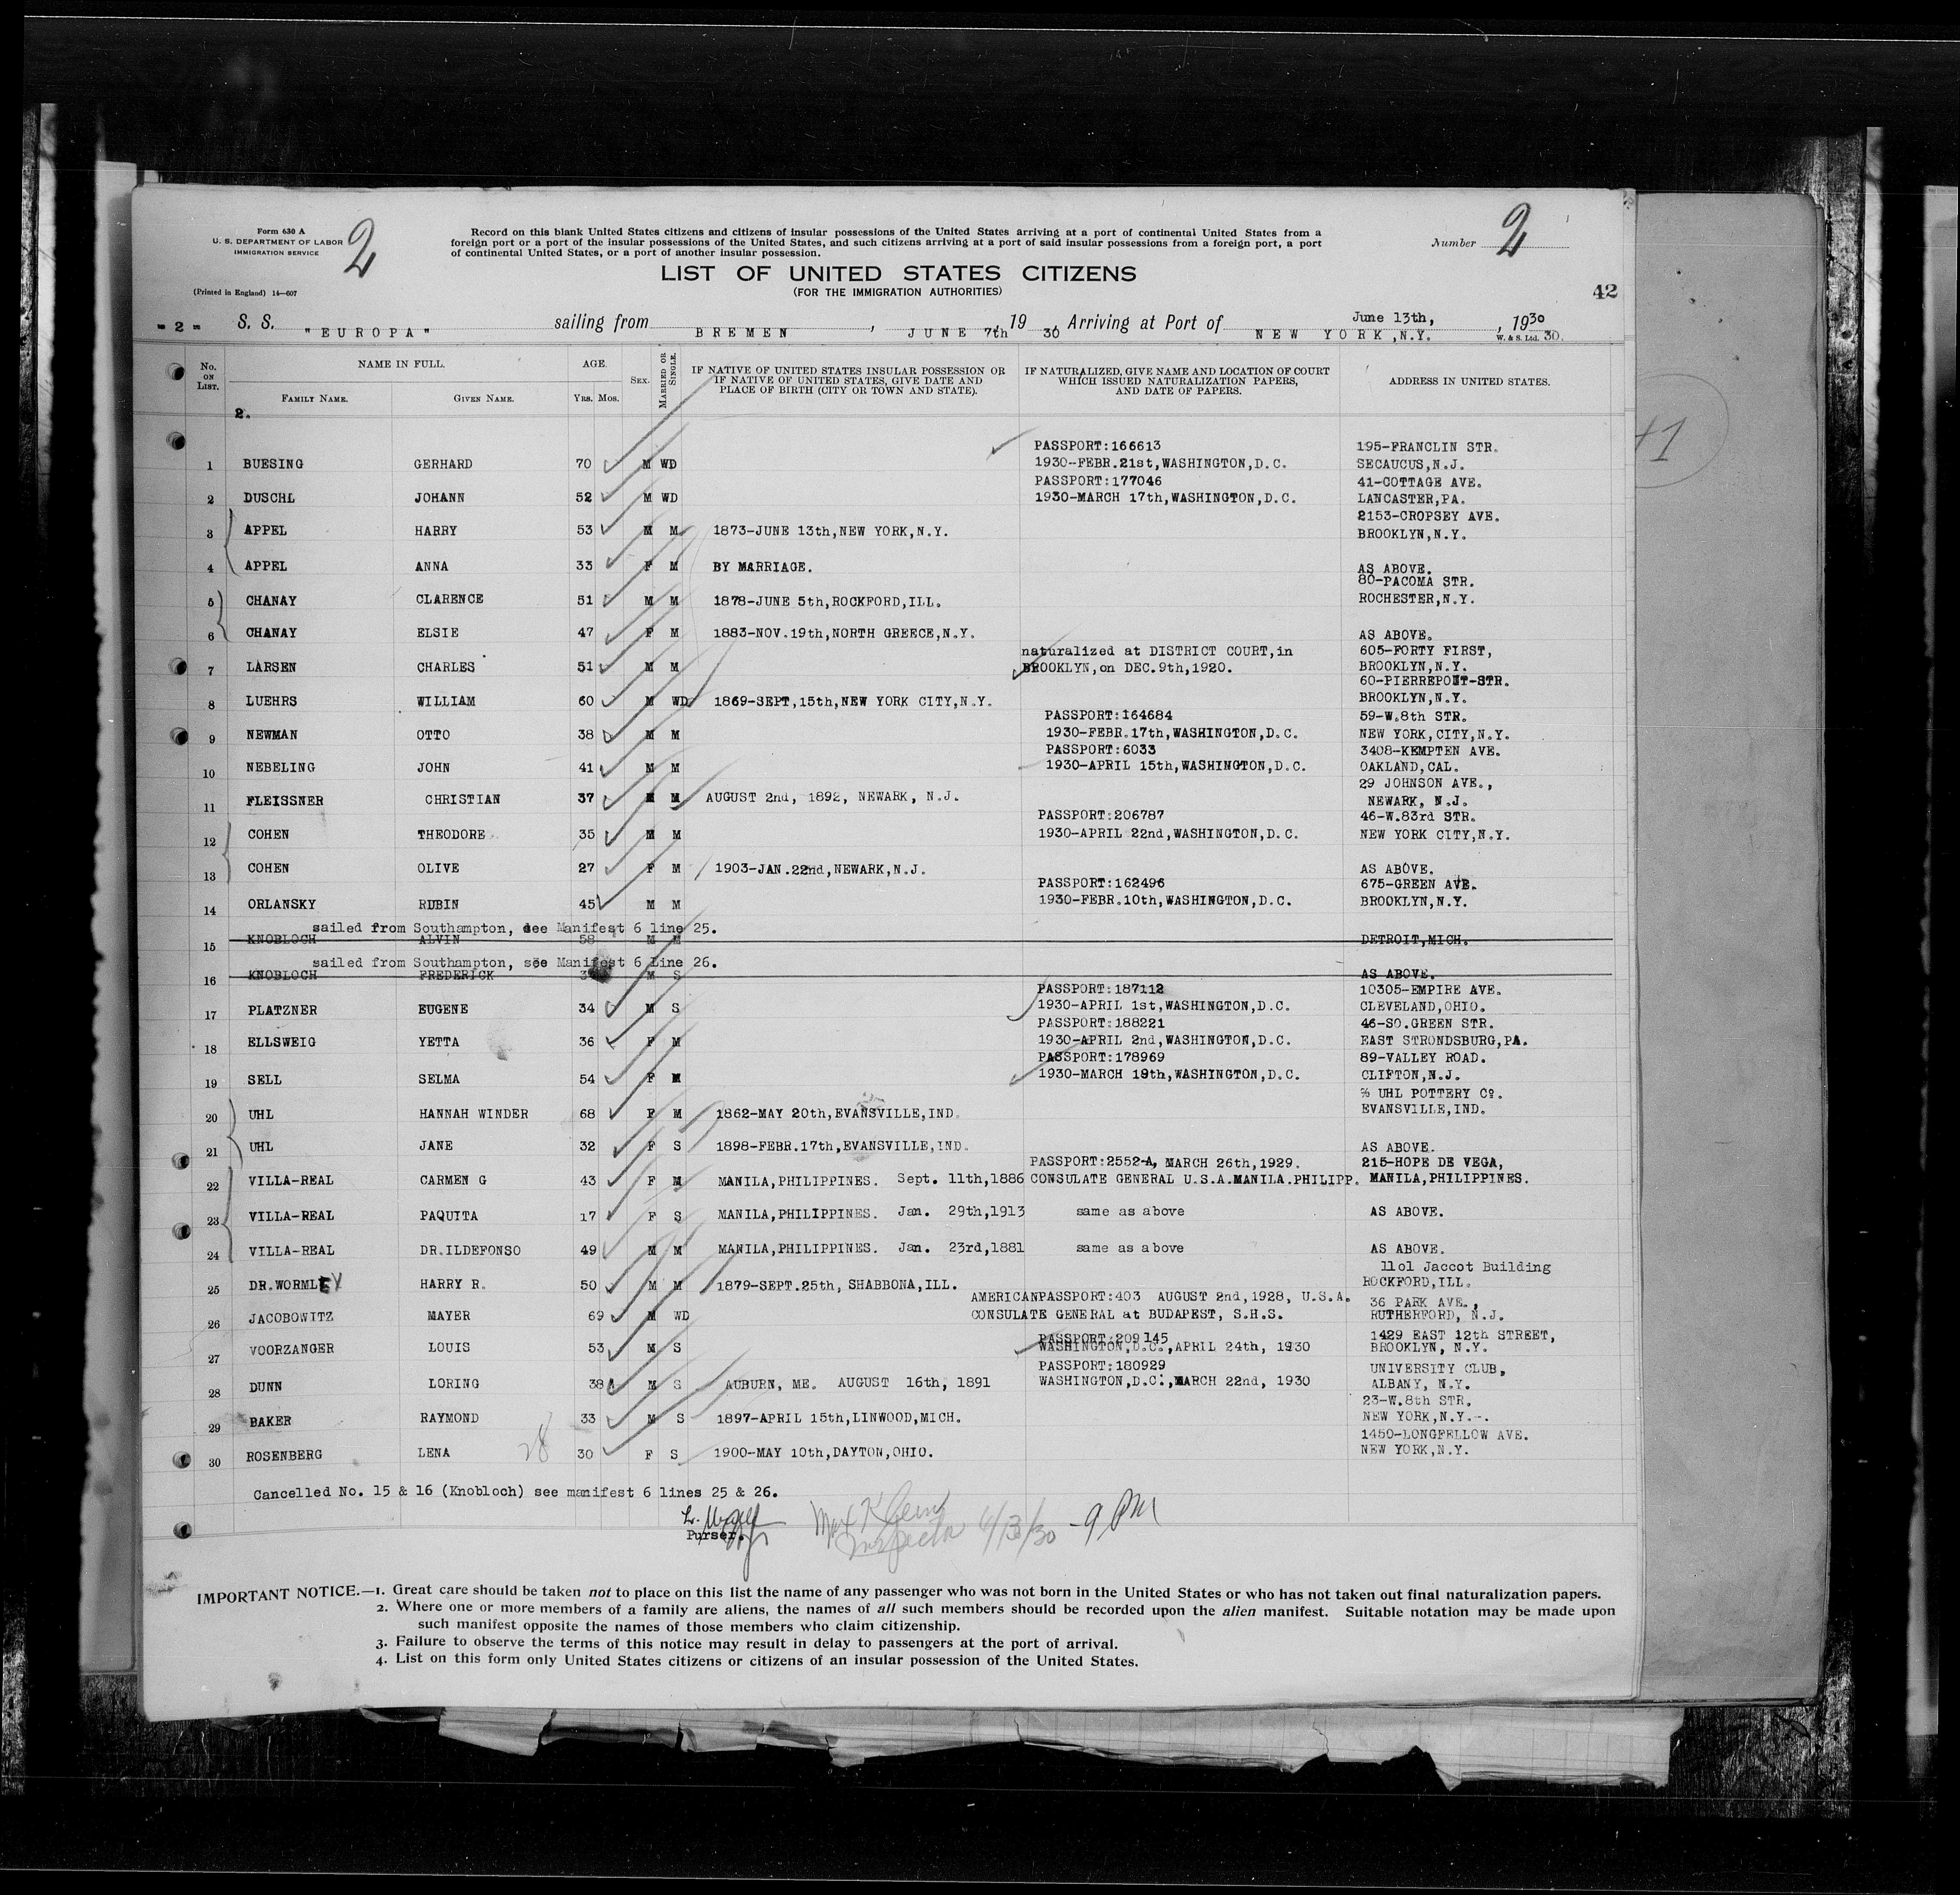 Form 630 A
U. S. DEPARTMENT OF LABOR
IMMIGRATION SERVICE
2
Record on this blank United States citizens and citizens of insular possessions of the United States arriving at a port of continental United States from a
foreign port or a port of the insular possessions of the United States, and such citizens arriving at a port of said insular possessions from a foreign port, a port
of continental United States, or a port of another insular possession.
Number 2
LIST OF UNITED STATES CITIZENS
(FOR THE IMMIGRATION AUTHORITIES)
(Printed in England) 14—607
42
- 2 - S. S. "EUROPA" sailing from BREMEN, JUNE 7th, 1930, Arriving at Port of NEW YORK,N.Y. June 13th, 1930 30.
W. & S. Ltd.
No. ON LIST. NAME IN FULL. FAMILY NAME. GIVEN NAME. AGE. YRS. MOS. SEX. MARRIED OR SINGLE. IF NATIVE OF UNITED STATES INSULAR POSSESSION OR IF NATIVE OF UNITED STATES, GIVE DATE AND PLACE OF BIRTH (CITY OR TOWN AND STATE). IF NATURALIZED, GIVE NAME AND LOCATION OF COURT WHICH ISSUED NATURALIZATION PAPERS, AND DATE OF PAPERS. ADDRESS IN UNITED STATES.
2.
PASSPORT:166613 195-FRANCLIN STR.
1 BUESING GERHARD 70 M WD 1930-FEBR.21st,WASHINGTON,D.C. SECAUCUS,N.J.
PASSPORT:177046 41-COTTAGE AVE.
2 DUSCHL JOHANN 52 M WD 1930-MARCH 17th,WASHINGTON,D.C. LANCASTER,PA.
2153-CROPSEY AVE.
3 APPEL HARRY 53 M M 1873-JUNE 13th,NEW YORK,N.Y. BROOKLYN,N.Y.
4 APPEL ANNA 33 F M BY MARRIAGE. AS ABOVE.
80-PACOMA STR.
5 CHANAY CLARENCE 51 M M 1878-JUNE 5th,ROCKFORD,ILL. ROCHESTER,N.Y.
6 CHANAY ELSIE 47 F M 1883-NOV.19th,NORTH GREECE,N.Y. AS ABOVE.
naturalized at DISTRICT COURT,in 605-FORTY FIRST,
7 LARSEN CHARLES 51 M M BROOKLYN,on DEC.9th,1920. BROOKLYN,N.Y.
60-PIERREPONT-STR.
8 LUEHRS WILLIAM 60 M WD 1869-SEPT,15th,NEW YORK CITY,N.Y. BROOKLYN,N.Y.
PASSPORT:164684 59-W.8th STR.
9 NEWMAN OTTO 38 M M 1930-FEBR.17th,WASHINGTON,D.C. NEW YORK,CITY,N.Y.
PASSPORT:6033 3408-KEMPTEN AVE.
10 NEBELING JOHN 41 M M 1930-APRIL 15th,WASHINGTON,D.C. OAKLAND,CAL.
29 JOHNSON AVE.,
11 FLEISSNER CHRISTIAN 37 M M AUGUST 2nd, 1892, NEWARK, N.J. NEWARK, N.J.
PASSPORT:206787 46-W.83rd STR.
12 COHEN THEODORE 35 M M 1930-APRIL 22nd,WASHINGTON,D.C. NEW YORK CITY,N.Y.
13 COHEN OLIVE 27 F M 1903-JAN.22nd,NEWARK,N.J. AS ABOVE.
PASSPORT:162496 675-GREEN AVE.
14 ORLANSKY RUBIN 45 M M 1930-FEBR.10th,WASHINGTON,D.C. BROOKLYN,N.Y.
sailed from Southampton, see Manifest 6 line 25.
15 KNOBLOCH ALVIN 58 M M DETROIT,MICH.
sailed from Southampton, see Manifest 6 Line 26.
16 KNOBLOCH FREDERICK M S AS ABOVE.
PASSPORT:187112 10305-EMPIRE AVE.
17 PLATZNER EUGENE 34 M S 1930-APRIL 1st,WASHINGTON,D.C. CLEVELAND,OHIO.
PASSPORT:188221 46-SO.GREEN STR.
18 ELLSWEIG YETTA 36 F M 1930-APRIL 2nd,WASHINGTON,D.C. EAST STRONDSBURG,PA.
PASSPORT:178969 89-VALLEY ROAD.
19 SELL SELMA 54 F M 1930-MARCH 19th,WASHINGTON,D.C. CLIFTON,N.J.
% UHL POTTERY Co.
20 UHL HANNAH WINDER 68 F M 1862-MAY 20th,EVANSVILLE,IND. EVANSVILLE,IND.
21 UHL JANE 32 F S 1898-FEBR.17th,EVANSVILLE,IND. AS ABOVE.
PASSPORT:2552-A, MARCH 26th,1929. 215-HOPE DE VEGA,
22 VILLA-REAL CARMEN G 43 F M MANILA,PHILIPPINES. Sept. 11th,1886 CONSULATE GENERAL U.S.A.MANILA.PHILIPP. MANILA,PHILIPPINES.
23 VILLA-REAL PAQUITA 17 F S MANILA,PHILIPPINES. Jan. 29th,1913 same as above AS ABOVE.
24 VILLA-REAL DR.ILDEFONSO 49 M M MANILA,PHILIPPINES. Jan. 23rd,1881 same as above AS ABOVE.
11o1 Jaccot Building
25 DR.WORMLEY HARRY R. 50 M M 1879-SEPT.25th, SHABBONA,ILL. ROCKFORD,ILL.
AMERICANPASSPORT:403 AUGUST 2nd,1928, U.S.A. 36 PARK AVE.,
26 JACOBOWITZ MAYER 69 M WD CONSULATE GENERAL at BUDAPEST, S.H.S. RUTHERFORD, N.J.
PASSPORT:209145 1429 EAST 12th STREET,
27 VOORZANGER LOUIS 53 M S WASHINGTON,D.C.,APRIL 24th, 1930 BROOKLYN, N.Y.
PASSPORT:180929 UNIVERSITY CLUB,
28 DUNN LORING 38 M S AUBURN, ME. AUGUST 16th, 1891 WASHINGTON,D.C.,MARCH 22nd, 1930 ALBANY, N.Y.
23-W.8th STR.
29 BAKER RAYMOND 33 M S 1897-APRIL 15th,LINWOOD,MICH. NEW YORK,N.Y.-.
1450-LONGFELLOW AVE.
30 ROSENBERG LENA 28 30 F S 1900-MAY 10th,DAYTON,OHIO. NEW YORK,N.Y.
Cancelled No. 15 & 16 (Knobloch) see manifest 6 lines 25 & 26.
Purser.
Max Klein
Inspector 6/13/30 -9 PM
IMPORTANT NOTICE.—1. Great care should be taken not to place on this list the name of any passenger who was not born in the United States or who has not taken out final naturalization papers.
2. Where one or more members of a family are aliens, the names of all such members should be recorded upon the alien manifest. Suitable notation may be made upon
such manifest opposite the names of those members who claim citizenship.
3. Failure to observe the terms of this notice may result in delay to passengers at the port of arrival.
4. List on this form only United States citizens or citizens of an insular possession of the United States.